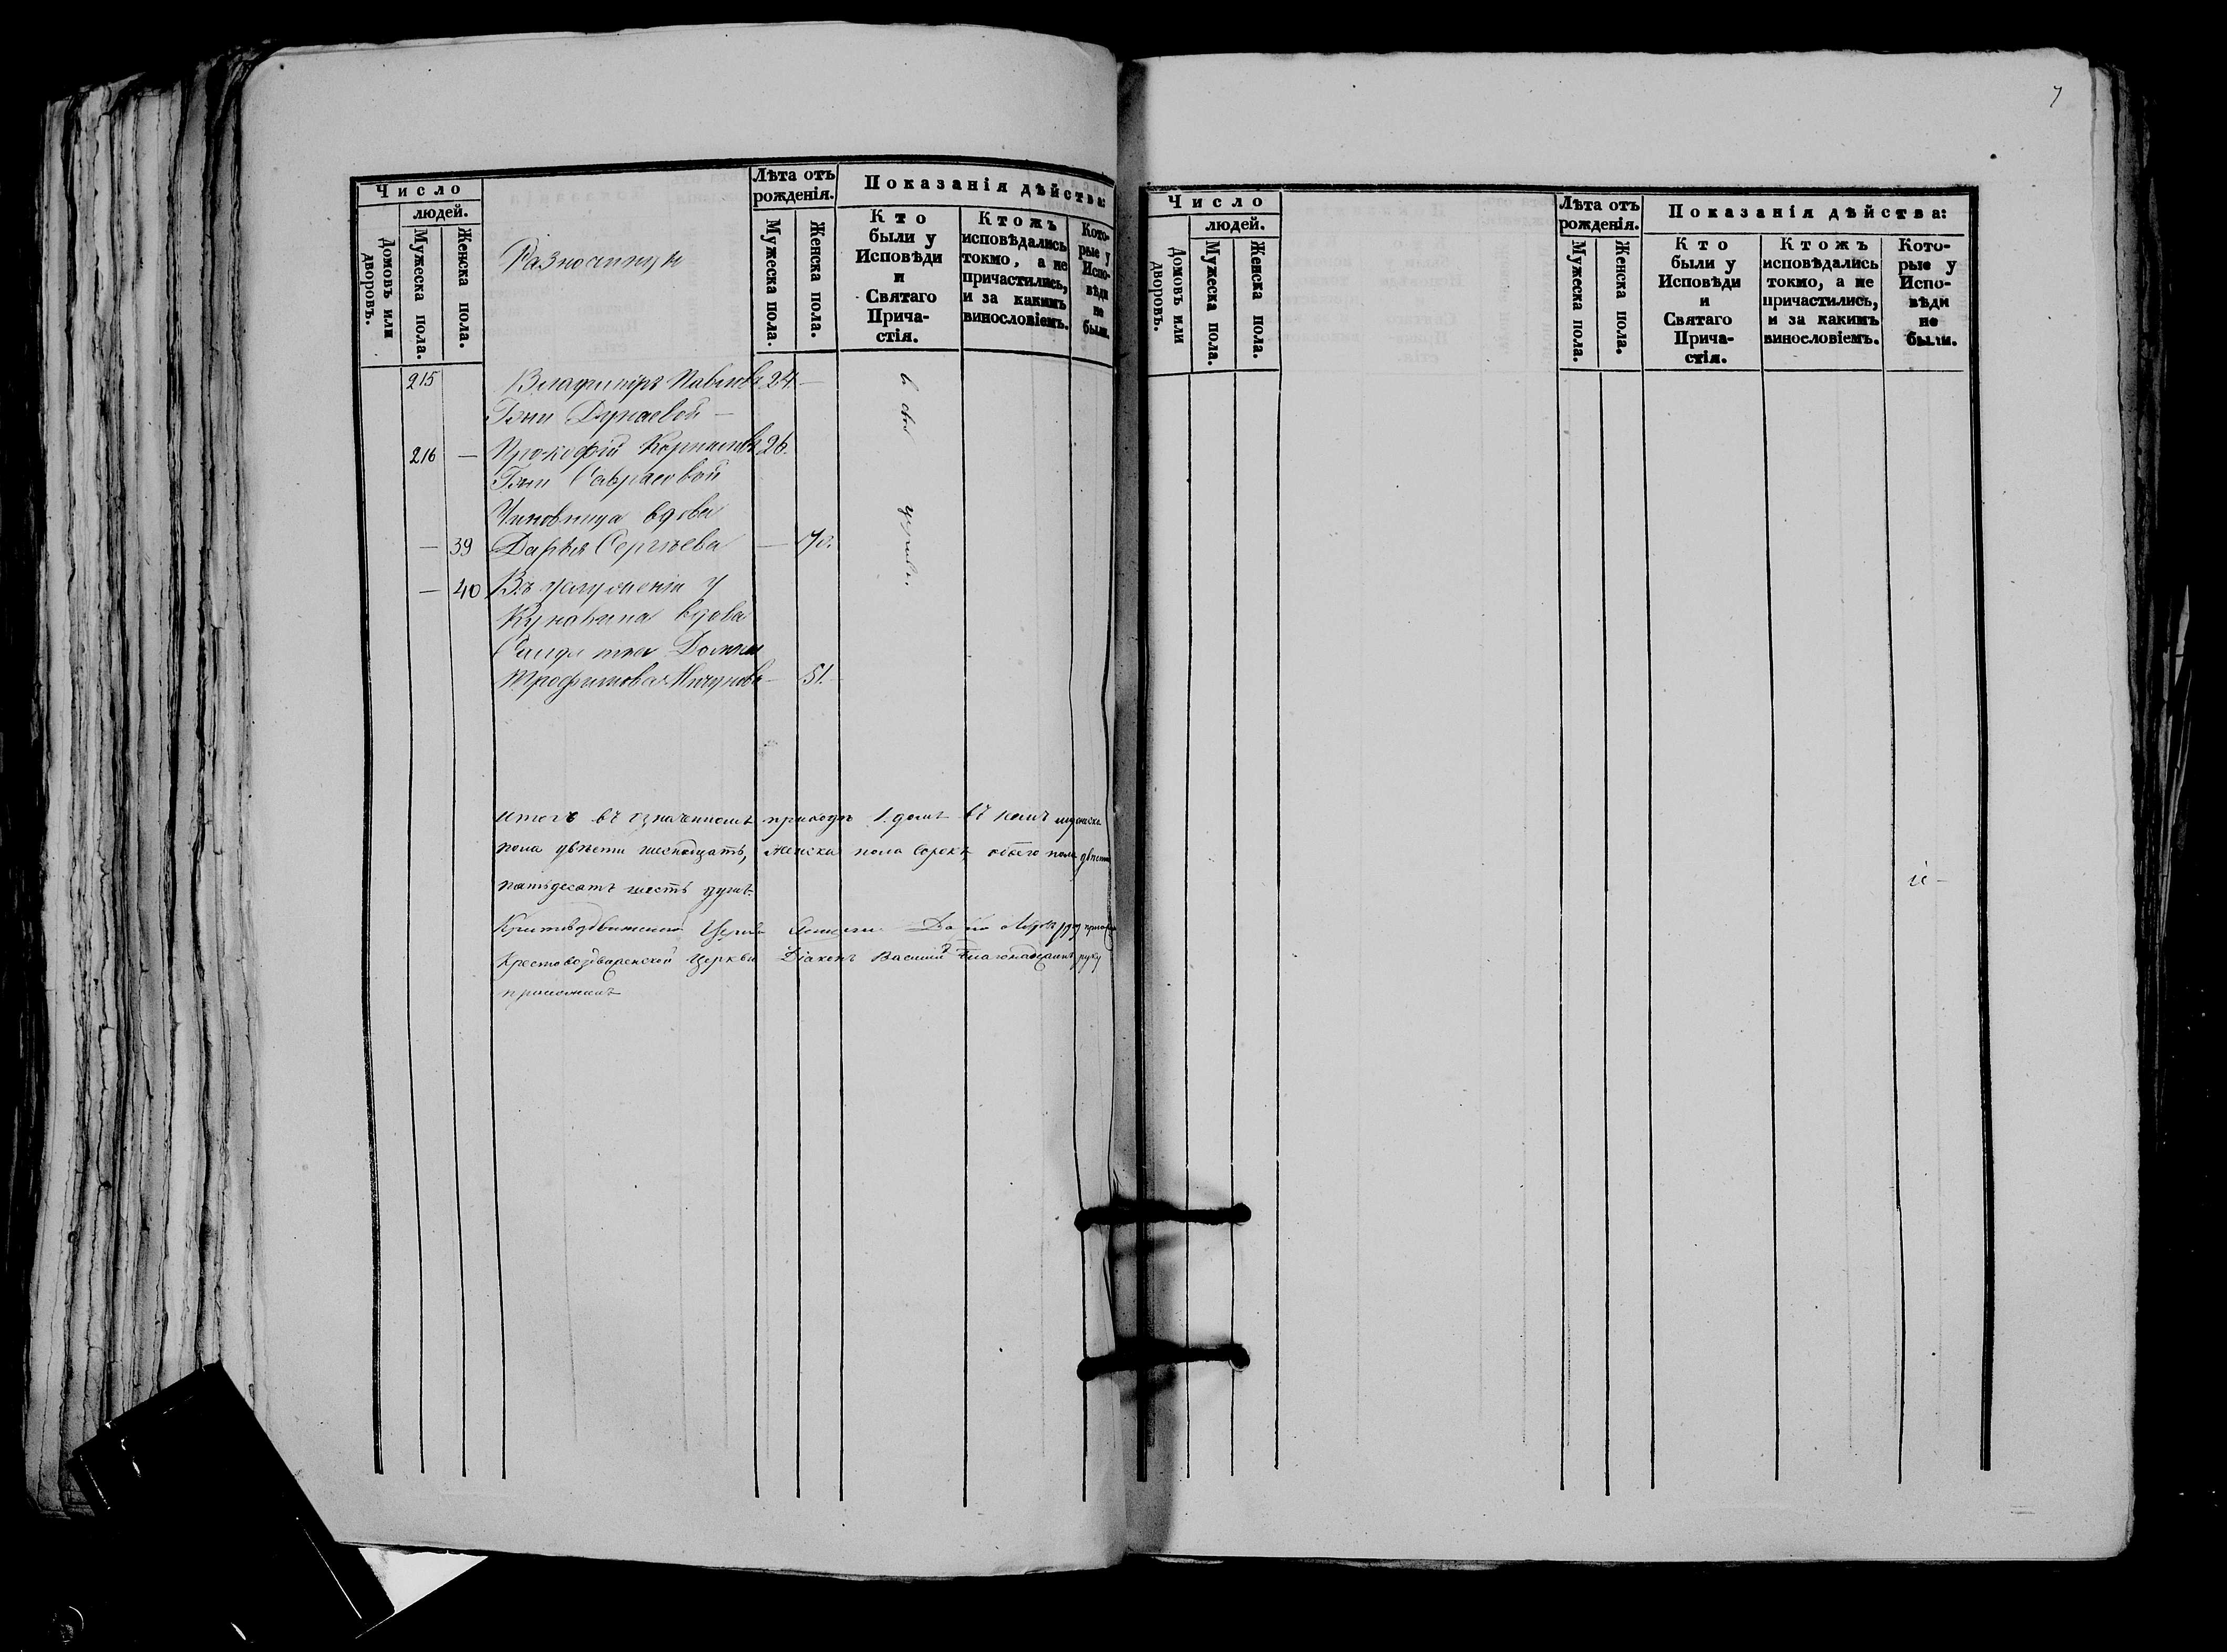 Число
людей.
Домовъ или дворовъ.
Мужеска пола.
Женска пола.
Разночинцы
Лѣта отъ рожденія.
Мужеска пола.
Женска пола.
Показанія дѣйства:
Кто были у Исповѣди и Святаго Причастія.
Ктожъ исповѣдались токмо, а не причастились, и за какимъ винословіемъ.
Которые у Исповѣди не были.
215 Владиміръ Павловъ 24. —
Гжи Дунаевой —
216 — Прокофій Корниловъ 26.
Гжи Саврасовой
Чиновница вдова
— 39 Дарья Сергѣева — 70.
— 40 Въ услуженіи у
вдова
Трофимова — 51. —
въ сей церкви.
итого въ означенномъ приходѣ 1. домъ въ коемъ мужеска
пола двѣсти шестнадцать, женска пола сорокъ обоего пола двѣсти
пятьдесятъ шесть душъ.
Церкви руку
Крестовоздвиженской Церкви Діаконъ Василій руку
приложилъ
7
Число
людей.
Домовъ или дворовъ.
Мужеска пола.
Женска пола.
Лѣта отъ рожденія.
Мужеска пола.
Женска пола.
Показанія дѣйства:
Кто были у Исповѣди и Святаго Причастія.
Ктожъ исповѣдались токмо, а не причастились, и за какимъ винословіемъ.
Которые у Исповѣди не были.